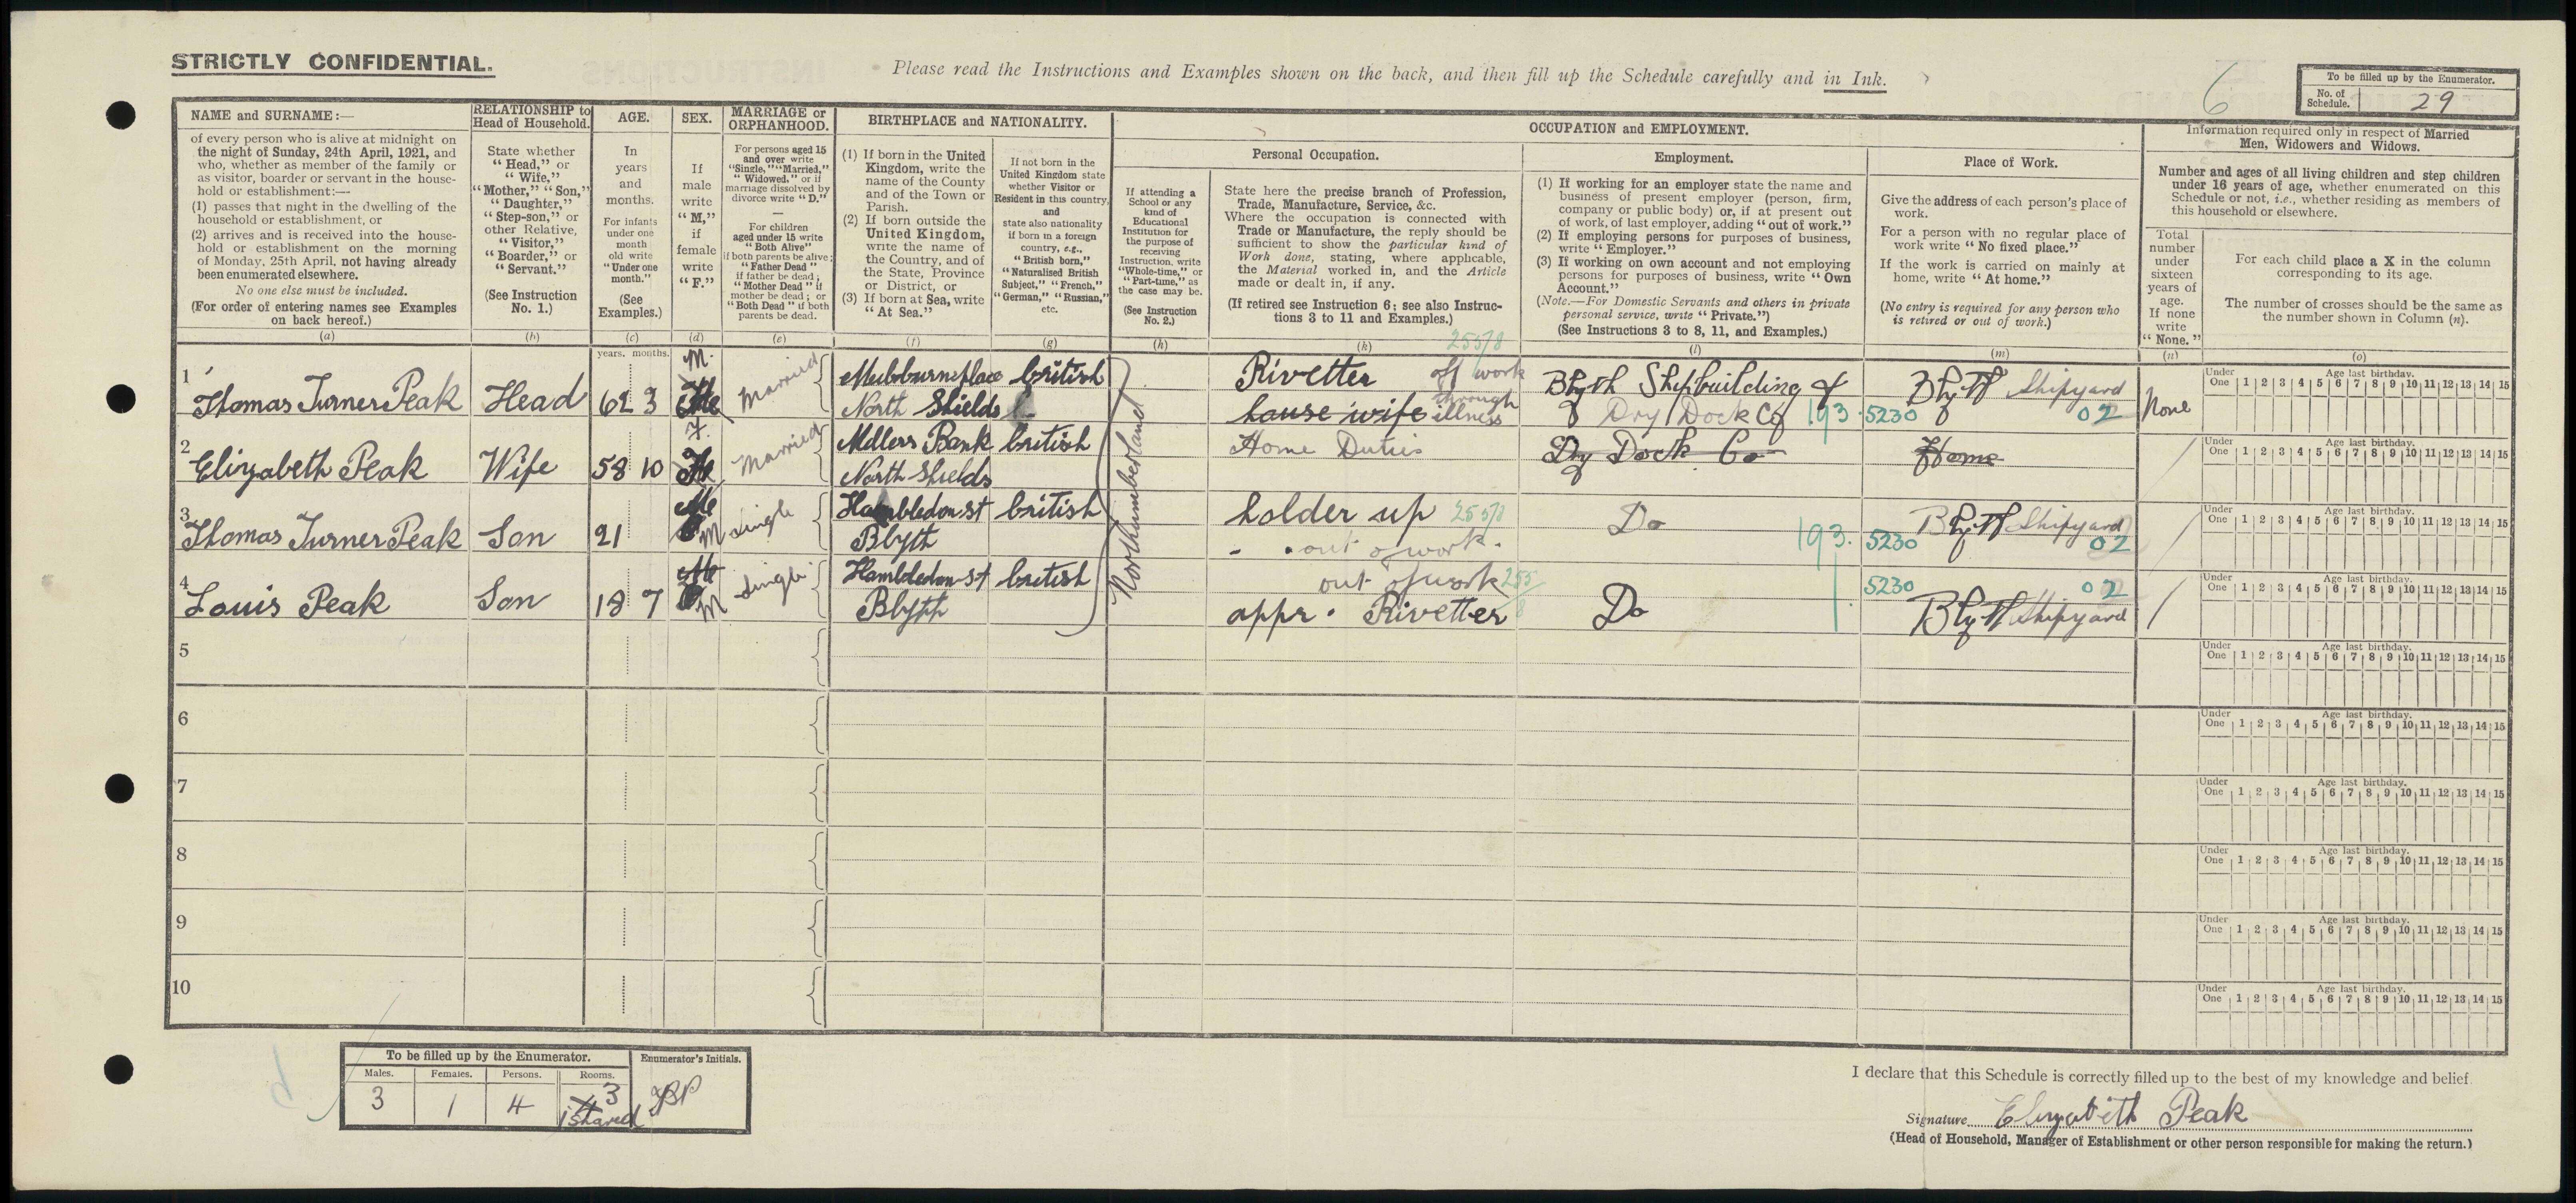 STRICTLY CONFIDENTIAL.
Please read the Instructions and Examples shown on the back, and then fill up the Schedule carefully and in Ink.
6
To be filled up by the Enumerator.
No. of Schedule. 29
NAME and SURNAME:—
of every person who is alive at midnight on
the night of Sunday, 24th April, 1921, and
who, whether as member of the family or
as visitor, boarder or servant in the house-
hold or establishment:—
(1) passes that night in the dwelling of the
household or establishment, or
(2) arrives and is received into the house-
hold or establishment on the morning
of Monday, 25th April, not having already
been enumerated elsewhere.
No one else must be included.
(For order of entering names see Examples
on back hereof.)
(a)
RELATIONSHIP to
Head of Household.
State whether
"Head," or
"Wife,"
"Mother," "Son,"
"Daughter,"
"Step-son," or
other Relative,
"Visitor,"
"Boarder," or
"Servant."
(See Instruction
No. 1.)
(b)
AGE.
In
years
and
months.
For infants
under one
month
old write
"Under one
month."
(See
Examples.)
(c)
years. months.
SEX.
If
male
write
"M,"
if
female
write
"F."
(d)
MARRIAGE or
ORPHANHOOD.
For persons aged 15
and over write
"Single," "Married,"
"Widowed," or if
marriage dissolved by
divorce write "D."
—
For children
aged under 15 write
"Both Alive"
if both parents be alive;
"Father Dead"
if father be dead;
"Mother Dead" if
mother be dead; or
"Both Dead" if both
parents be dead.
(e)
BIRTHPLACE and NATIONALITY.
(1) If born in the United
Kingdom, write the
name of the County
and of the Town or
Parish.
(2) If born outside the
United Kingdom,
write the name of
the Country, and of
the State, Province
or District, or
(3) If born at Sea, write
"At Sea."
(f)
If not born in the
United Kingdom state
whether Visitor or
Resident in this country,
and
state also nationality
if born in a foreign
country, e.g.,
"British born,"
"Naturalised British
Subject," "French,"
"German," "Russian,"
etc.
(g)
OCCUPATION and EMPLOYMENT.
If attending a
School or any
kind of
Educational
Institution for
the purpose of
receiving
Instruction, write
"Whole-time," or
"Part-time," as
the case may be.
(See Instruction
No. 2.)
(h)
Personal Occupation.
State here the precise branch of Profession,
Trade, Manufacture, Service, &c.
Where the occupation is connected with
Trade or Manufacture, the reply should be
sufficient to show the particular kind of
Work done, stating, where applicable,
the Material worked in, and the Article
made or dealt in, if any.
(If retired see Instruction 6: see also Instruc-
tions 3 to 11 and Examples.)
(k)
Employment.
(1) If working for an employer state the name and
business of present employer (person, firm,
company or public body) or, if at present out
of work, of last employer, adding "out of work."
(2) If employing persons for purposes of business,
write "Employer."
(3) If working on own account and not employing
persons for purposes of business, write "Own
Account."
(Note.—For Domestic Servants and others in private
personal service, write "Private.")
(See Instructions 3 to 8, 11, and Examples.)
(l)
Place of Work.
Give the address of each person's place of
work.
For a person with no regular place of
work write "No fixed place."
If the work is carried on mainly at
home, write "At home."
(No entry is required for any person who
is retired or out of work.)
(m)
Information required only in respect of Married
Men, Widowers and Widows.
Number and ages of all living children and step children
under 16 years of age, whether enumerated on this
Schedule or not, i.e., whether residing as members of
this household or elsewhere.
Total
number
under
sixteen
years of
age.
If none
write
"None."
(n)
For each child place a X in the column
corresponding to its age.
The number of crosses should be the same as
the number shown in Column (n).
(o)
1 Thomas Turner Peak Head 62 3 M. Married
place british
North Shields
Rivetter off work through illness 255/8
hause wife
Blyth Shipbuilding &
Dry Dock Co 193.
Blyth Shipyard
5230 02
None
2 Elizabeth Peak Wife 58 10 F. Married
Bank british
North Shields
Home Duties
Dry Dock Co
Home
3 Thomas Turner Peak Son 21 M Single
Hambledon st british
Blyth
holder up 255/8
out of work.
Do 193.
Blyth Shipyard
5230 02
4 Louis Peak Son 18 7 M Single
Hambledon st british
Blyth
out of work 255/8
appr. Rivetter
Do
5230 02
Blyth Shipyard
Northumberland
5
6
7
8
9
10
Under One 1 2 3 4 5 6 7 8 9 10 11 12 13 14 15
Age last birthday.
Under One 1 2 3 4 5 6 7 8 9 10 11 12 13 14 15
Age last birthday.
Under One 1 2 3 4 5 6 7 8 9 10 11 12 13 14 15
Age last birthday.
Under One 1 2 3 4 5 6 7 8 9 10 11 12 13 14 15
Age last birthday.
Under One 1 2 3 4 5 6 7 8 9 10 11 12 13 14 15
Age last birthday.
Under One 1 2 3 4 5 6 7 8 9 10 11 12 13 14 15
Age last birthday.
Under One 1 2 3 4 5 6 7 8 9 10 11 12 13 14 15
Age last birthday.
Under One 1 2 3 4 5 6 7 8 9 10 11 12 13 14 15
Age last birthday.
Under One 1 2 3 4 5 6 7 8 9 10 11 12 13 14 15
Age last birthday.
Under One 1 2 3 4 5 6 7 8 9 10 11 12 13 14 15
Age last birthday.
To be filled up by the Enumerator.
Enumerator's Initials.
Males. Females. Persons. Rooms.
3 1 4 3
1 shared
I declare that this Schedule is correctly filled up to the best of my knowledge and belief.
Signature Elizabeth Peak
(Head of Household, Manager of Establishment or other person responsible for making the return.)